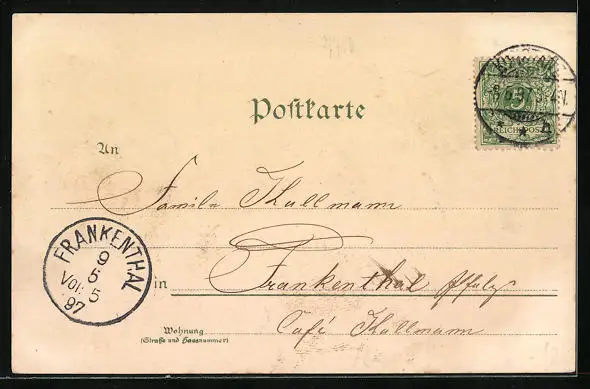 Postkarte
5
REICHSPOST
An
Familie Kullmann
FRANKENTHAL
9
5
Vor. 5
97
in Frankenthal Pfalz
Wohnung
(Straße und Hausnummer)
Café Kullmann